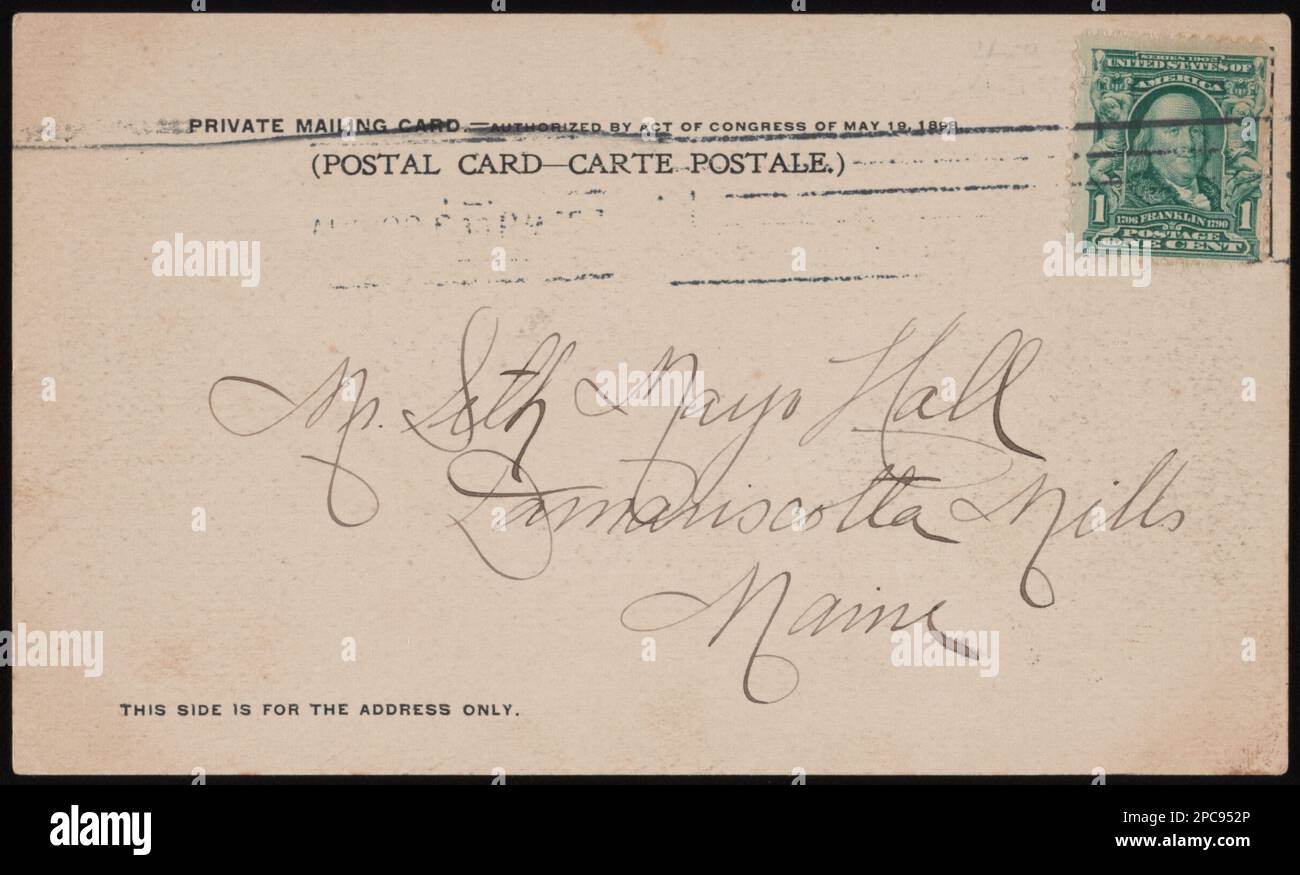 PRIVATE MAILING CARD—AUTHORIZED BY ACT OF CONGRESS OF MAY 19, 1898
(POSTAL CARD—CARTE POSTALE.)
SERIES 1902
UNITED STATES OF
AMERICA
1 1706 FRANKLIN 1790 1
POSTAGE
ONE CENT
Mr. Seth Mayo Hall
Damariscotta Mills
Maine
THIS SIDE IS FOR THE ADDRESS ONLY.
alamy
alamy
alamy
alamy
alamy
a
a
a
a
a
alamy
Image ID: 2PC952P
www.alamy.com